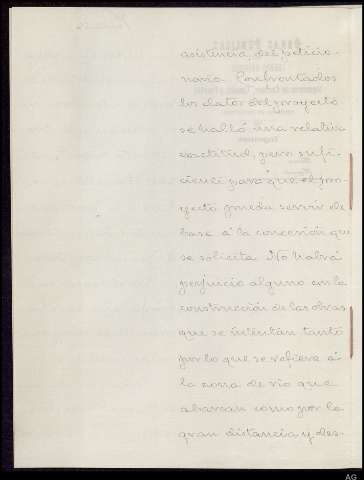 asistencia del peticio-
nario. Confrontados
los datos del proyecto
se halló una relativa
exactitud, pero sufi-
ciente para que el pro-
yecto pueda servir de
base á la concesión que
se solicita. No habrá
perjuicio alguno en la
construcción de las obras
que se intentan tanto
por lo que se refiere á
la zona de rio que
abarcan como por la
gran distancia y des-
AG